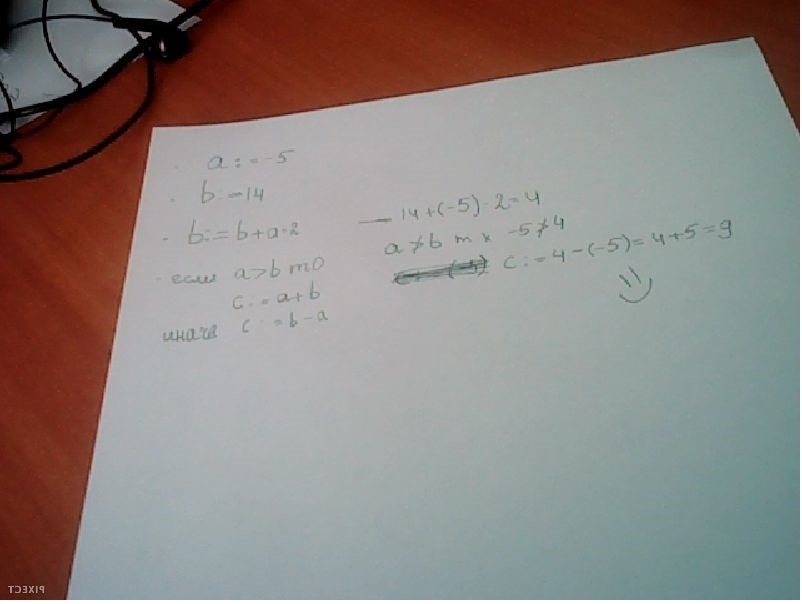 a := -5
b := 14
b := b+a·2
если a>b то
c := a+b
иначе c := b-a
— 14+(-5)·2=4
a ≯ b т к -5 ≯ 4
c := 4-(-5)=4+5=9
PIXECT